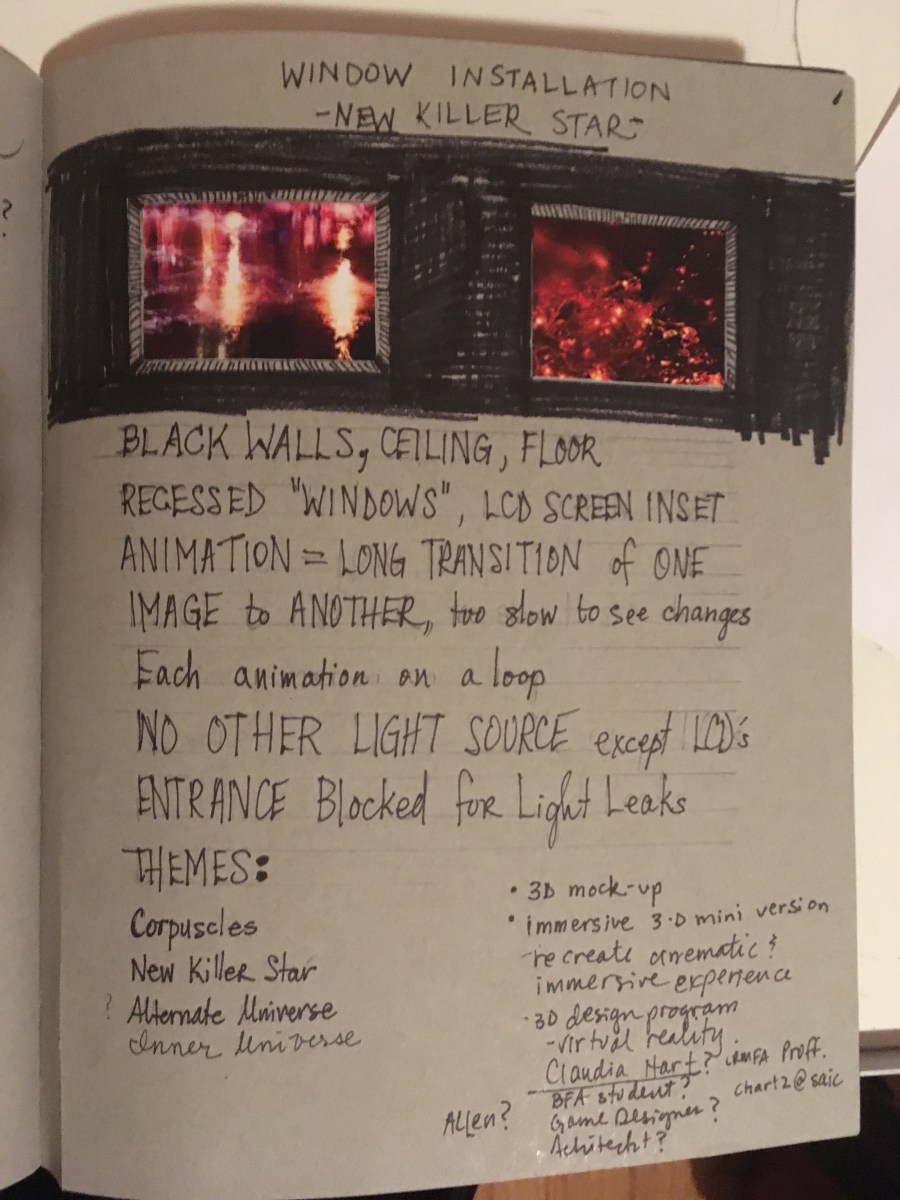 WINDOW INSTALLATION
-NEW KILLER STAR-
?
BLACK WALLS, CEILING, FLOOR
RECESSED "WINDOWS", LCD SCREEN INSET
ANIMATION = LONG TRANSITION of ONE
IMAGE to ANOTHER, too slow to see changes
Each animation on a loop
NO OTHER LIGHT SOURCE except LCD's
ENTRANCE Blocked for Light Leaks
THEMES:
Corpuscles
New Killer Star
? Alternate Universe
Inner Universe
• 3D mock-up
• immersive 3-D mini version
recreate cinematic &
immersive experience
-3D design program
-virtual reality
Claudia Hart? Proff.
chart2@saic
BFA student?
Allen? Game Designer?
Achitecht?